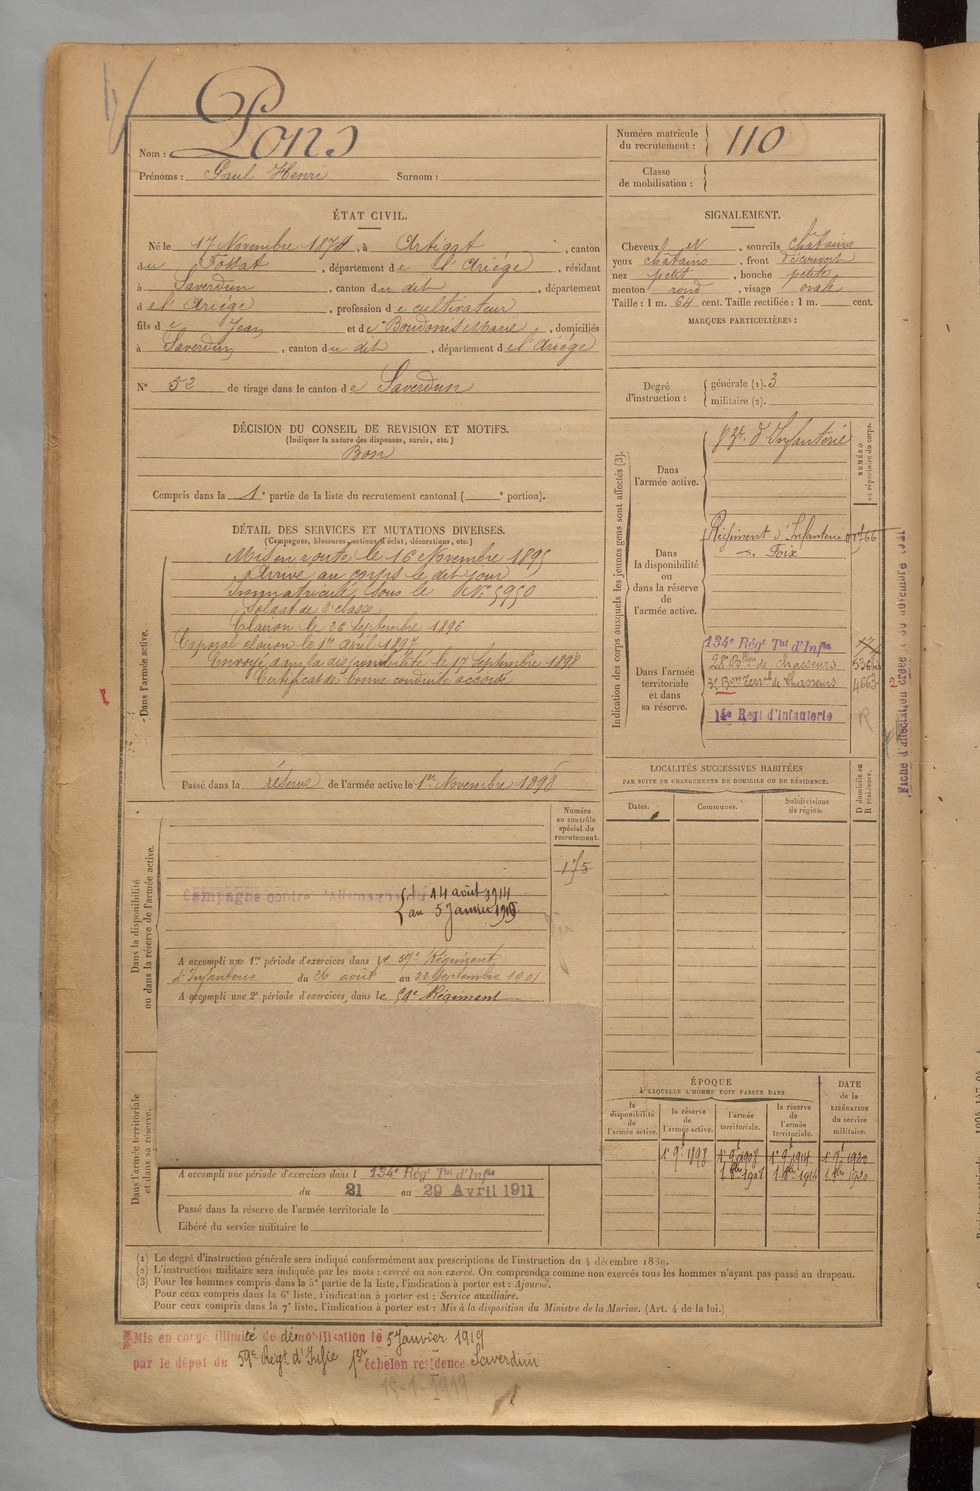 Nom : Pons
Prénoms : Paul Henri Surnom :
Numéro matricule
du recrutement : 110
Classe
de mobilisation :
ÉTAT CIVIL.
Né le 17 Novembre 1874, à Artigat, canton
du Fossat, département de l'Ariège, résidant
à Saverdun, canton du dit, département
de l'Ariège, profession de cultivateur
fils de Jean et de Boudonis Marie, domiciliés
à Saverdun, canton du dit, département de l'Ariège
N° 52 de tirage dans le canton de Saverdun
SIGNALEMENT.
Cheveux et, sourcils châtains
yeux châtains, front découvert
nez petit, bouche petite
menton rond, visage ovale
Taille : 1 m. 64 cent. Taille rectifiée : 1 m. cent.
MARQUES PARTICULIÈRES :
Degré
d'instruction :
générale (1). 3
militaire (2).
DÉCISION DU CONSEIL DE REVISION ET MOTIFS.
(Indiquer la nature des dispenses, sursis, etc.)
Bon
Compris dans la 1e partie de la liste du recrutement cantonal ( e portion).
DÉTAIL DES SERVICES ET MUTATIONS DIVERSES.
(Campagnes, blessures, actions d'éclat, décorations, etc.)
Dans l'armée active.
Mis en route le 16 Novembre 1895
Arrivé au corps le dit jour
Immatriculé sous le N° 5950
Soldat de 2e classe
Clairon le 26 Septembre 1896
Caporal clairon le 1er avril 1897
Envoyé dans la disponibilité le 17 Septembre 1898
Certificat de bonne conduite accordé
Passé dans la réserve de l'armée active le 1er Novembre 1898
Indication des corps auxquels les jeunes gens sont affectés (3).
NUMÉRO
au répertoire du corps.
Dans
l'armée active.
d'Infanterie
Dans
la disponibilité
ou dans
la réserve
de
l'armée active.
Régiment d'Infanterie
de Foix
Dans l'armée
territoriale
et dans
sa réserve.
134e Régt Tal d'Infie
28e Bllon de chasseurs
Bon terral de Chasseurs
14e Regt d'Infanterie
Fiche d'affectation créée le 30 novembre
LOCALITÉS SUCCESSIVES HABITÉES
PAR SUITE DE CHANGEMENTS DE DOMICILE OU DE RÉSIDENCE.
Dates. Communes. Subdivisions
de région.
D domicile ou
R résidence.
Dans la disponibilité
ou dans la réserve de l'armée active.
Numéro
au contrôle
spécial du
recrutement.
Campagne contre l'Allemagne du
14 août 1914
au 5 Janvier 1919
A accompli une 1re période d'exercices dans le 59e Régiment
d'Infanterie du 26 août au 22 Septembre 1901
A accompli une 2e période d'exercices dans le 59e Régiment
Dans l'armée territoriale
et dans sa réserve.
A accompli une période d'exercices dans l 134e Régt Tal d'Infie
du 21 au 29 Avril 1911
Passé dans la réserve de l'armée territoriale le
Libéré du service militaire le
ÉPOQUE
À LAQUELLE L'HOMME DOIT PASSER DANS
la
disponibilité
de
l'armée active.
la réserve
de
l'armée active.
l'armée
territoriale.
la réserve
de
l'armée
territoriale.
DATE
de la
LIBÉRATION
du service
militaire.
(1) Le degré d'instruction générale sera indiqué conformément aux prescriptions de l'instruction du 4 décembre 1889.
(2) L'instruction militaire sera indiquée par les mots : exercé ou non exercé. On comprendra comme non exercés tous les hommes n'ayant pas passé au drapeau.
(3) Pour les hommes compris dans la 5e partie de la liste, l'indication à porter est : Ajourné.
Pour ceux compris dans la 6e liste, l'indication à porter est : Service auxiliaire.
Pour ceux compris dans la 7e liste, l'indication à porter est : Mis à la disposition du Ministre de la Marine. (Art. 4 de la loi.)
Mis en congé illimité de démobilisation le 5 Janvier 1919
par le dépot du 59e Regt d'Infie 1er échelon residence Saverdun
15-1-1919